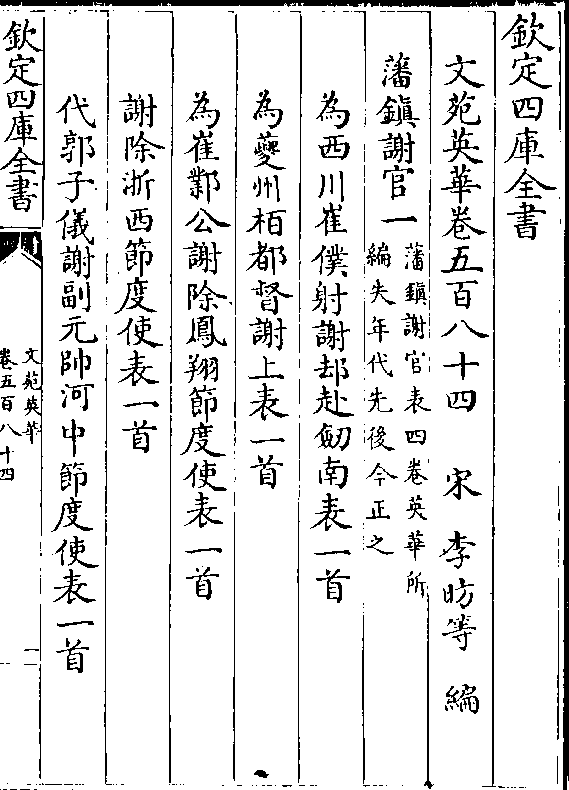 欽定四庫全書
文苑英華卷五百八十四　宋　李昉等　編
藩鎮謝官一
藩鎮謝官表四卷英華所
編失年代先後今正之
為西川崔僕射謝却赴劒南表一首
為夔州柏都督謝上表一首
為崔鄴公謝除鳳翔節度使表一首
謝除浙西節度使表一首
代郭子儀謝副元帥河中節度使表一首
欽定四庫全書
文苑英華
卷五百八十四
一